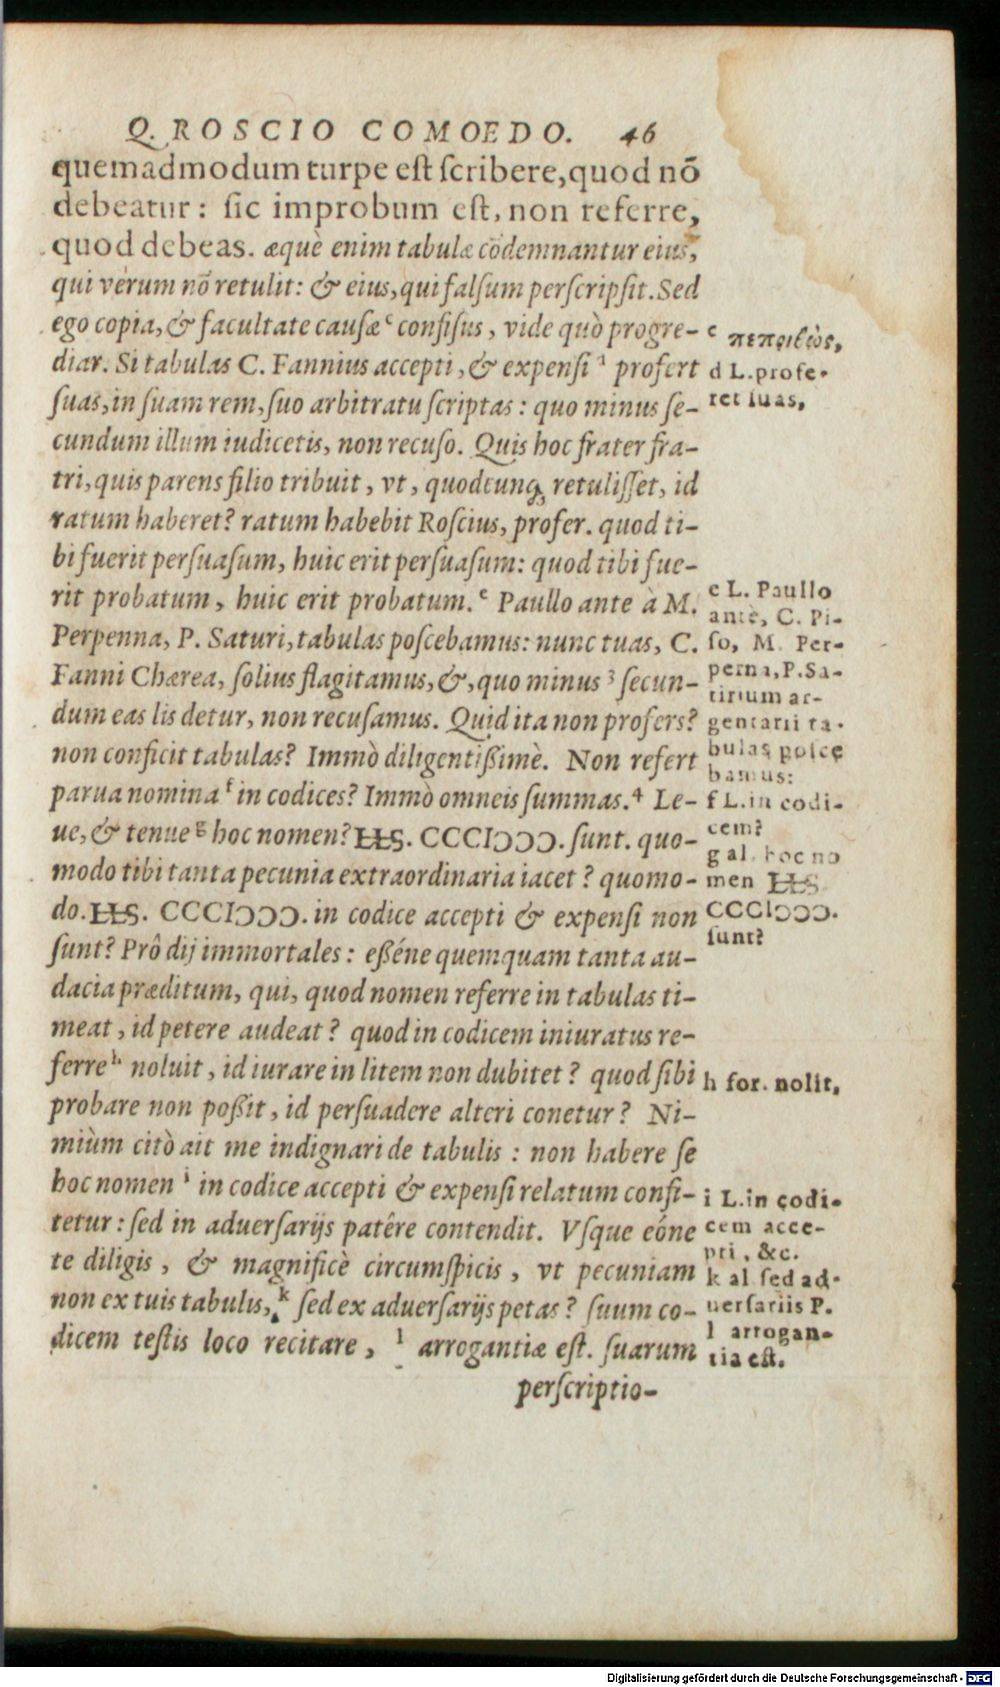 Q. ROSCIO COMOEDO. 46
quemadmodum turpe eſt ſcribere, quod nō
debeatur: ſic improbum eſt, non referre,
quod debeas. æquè enim tabulæ cōdemnantur eius,
qui verum nō retulit: & eius, qui falſum perſcripſit. Sed
ego copia, & facultate cauſæ ᶜ confiſus, vide quò progre-
diar. Si tabulas C. Fannius accepti, & expenſi ᵈ profert
ſuas, in ſuam rem, ſuo arbitratu ſcriptas: quo minus ſe-
cundum illum iudicetis, non recuſo. Quis hoc frater fra-
tri, quis parens filio tribuit, vt, quodcunq; retuliſſet, id
ratum haberet? ratum habebit Roſcius, profer. quod ti-
bi fuerit perſuaſum, huic erit perſuaſum: quod tibi fue-
rit probatum, huic erit probatum. ᵉ Paullo ante à M.
Perpenna, P. Saturi, tabulas poſcebamus: nunc tuas, C.
Fanni Chærea, ſolius flagitamus, &, quo minus ³ ſecun-
dum eas lis detur, non recuſamus. Quid ita non profers?
non conficit tabulas? Immò diligentißimè. Non refert
parua nomina ᶠ in codices? Immò omneis ſummas. ⁴ Le-
ue, & tenue ᵍ hoc nomen? HS. CCCIↃↃↃ. ſunt. quo-
modo tibi tanta pecunia extraordinaria iacet? quomo-
do. HS. CCCIↃↃↃ. in codice accepti & expenſi non
ſunt? Prô dij immortales: eßéne quemquam tanta au-
dacia præditum, qui, quod nomen referre in tabulas ti-
meat, id petere audeat? quod in codicem iniuratus re-
ferre ʰ noluit, id iurare in litem non dubitet? quod ſibi
probare non poßit, id perſuadere alteri conetur? Ni-
miùm citò ait me indignari de tabulis: non habere ſe
hoc nomen ⁱ in codice accepti & expenſi relatum confi-
tetur: ſed in aduerſarijs patêre contendit. Vſque eóne
te diligis, & magnificè circumſpicis, vt pecuniam
non ex tuis tabulis, ᵏ ſed ex aduerſarijs petas? ſuum co-
dicem teſtis loco recitare, ˡ arrogantiæ eſt. ſuarum
perſcriptio-
c πεποιθὼς,
d L. profe-
ret ſuas,
e L. Paullo
antè, C. Pi-
ſo, M. Per-
perna, P. Sa-
tirium ar-
gentarii ta-
bulas poſce
bamus:
f L. in codi-
cem?
g al. hoc no
men HS
CCCIↃↃↃ.
ſunt?
h for. nolit,
i L. in codi-
cem acce-
pti, &c.
k al ſed ad-
uerſariis P.
l arrogan-
tia eſt.
Digitalisierung gefördert durch die Deutsche Forschungsgemeinschaft - DFG